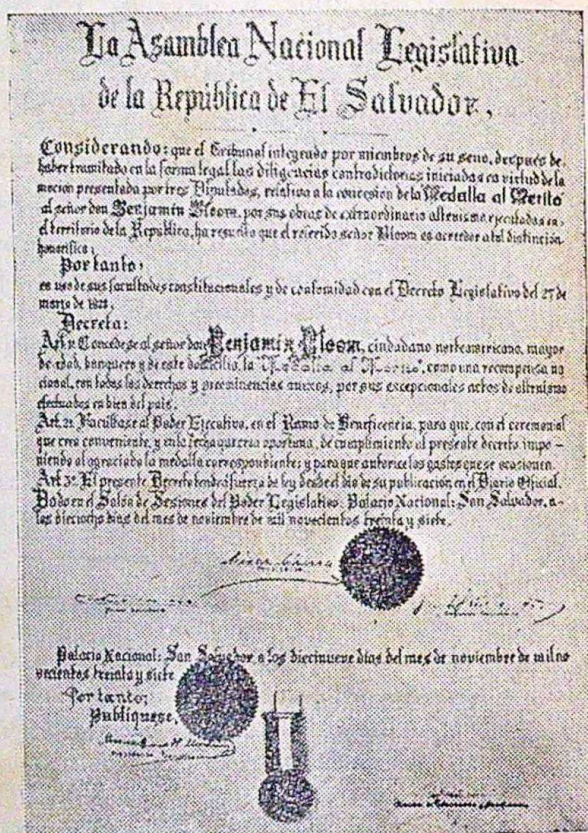 La Asamblea Nacional Legislativa
de la República de El Salvador,
Considerando: que el Tribunal integrado por miembros de su seno, después de
haber tramitado en la forma legal las diligencias contradictorias iniciadas en virtud de la
moción presentada por tres Diputados, relativa a la concesión de la Medalla al Mérito
al señor don Benjamin Bloom, por sus obras de extraordinario altruismo, ejecutadas en
el territorio de la República, ha resuelto que el referido señor Bloom es acreedor a tal distinción
honorífica;
Por tanto,
en uso de sus facultades constitucionales y de conformidad con el Decreto Legislativo del 27 de
marzo de
Decreta:
Art. 1º Concédese al señor don Benjamin Bloom, ciudadano norteamericano, mayor
de edad, banquero y de este domicilio, la "Medalla al Mérito", como una recompensa na
cional, con todos los derechos y preeminencias anexos, por sus excepcionales actos de altruismo
efectuados en bien del país.
Art. 2º Facúltase al Poder Ejecutivo, en el Ramo de Beneficencia, para que, con el ceremonial
que crea conveniente, y en la fecha que crea oportuna, dé cumplimiento al presente decreto impo-
niendo al agraciado la medalla correspondiente; y para que autorice los gastos que se ocasionen.
Art. 3º El presente Decreto tendrá fuerza de ley desde el día de su publicación en el Diario Oficial.
Dado en el Salón de Sesiones del Poder Legislativo: Palacio Nacional: San Salvador, a
los dieciocho días del mes de noviembre de mil novecientos treinta y siete.
Palacio Nacional: San Salvador, a los diecinueve días del mes de noviembre de mil no
vecientos treinta y siete
Por tanto;
Publíquese,